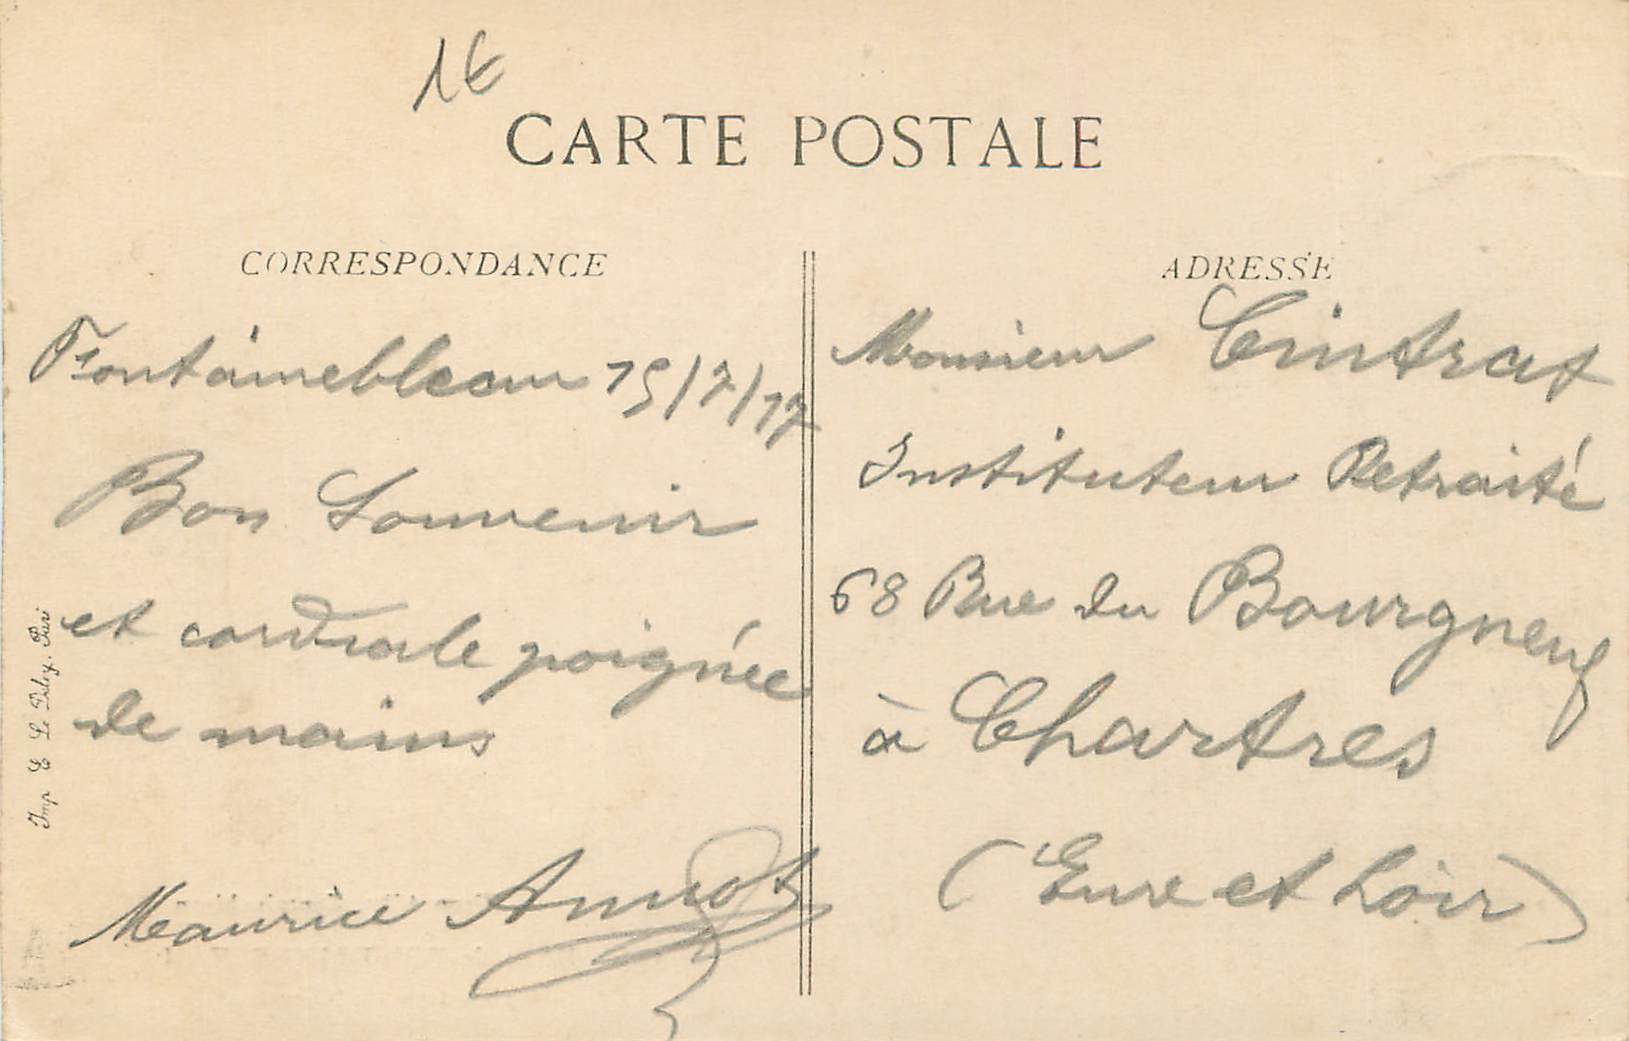 1€
CARTE POSTALE
CORRESPONDANCE
Fontainebleau 15/7/17
Bon Souvenir
et cordiale poignée
de mains
Maurice
Imp E Le Deley. Pari
ADRESSE
Monsieur Cintrat
Instituteur Retraité
68 Rue du Bourgneuf
à Chartres
(Eure et Loir)